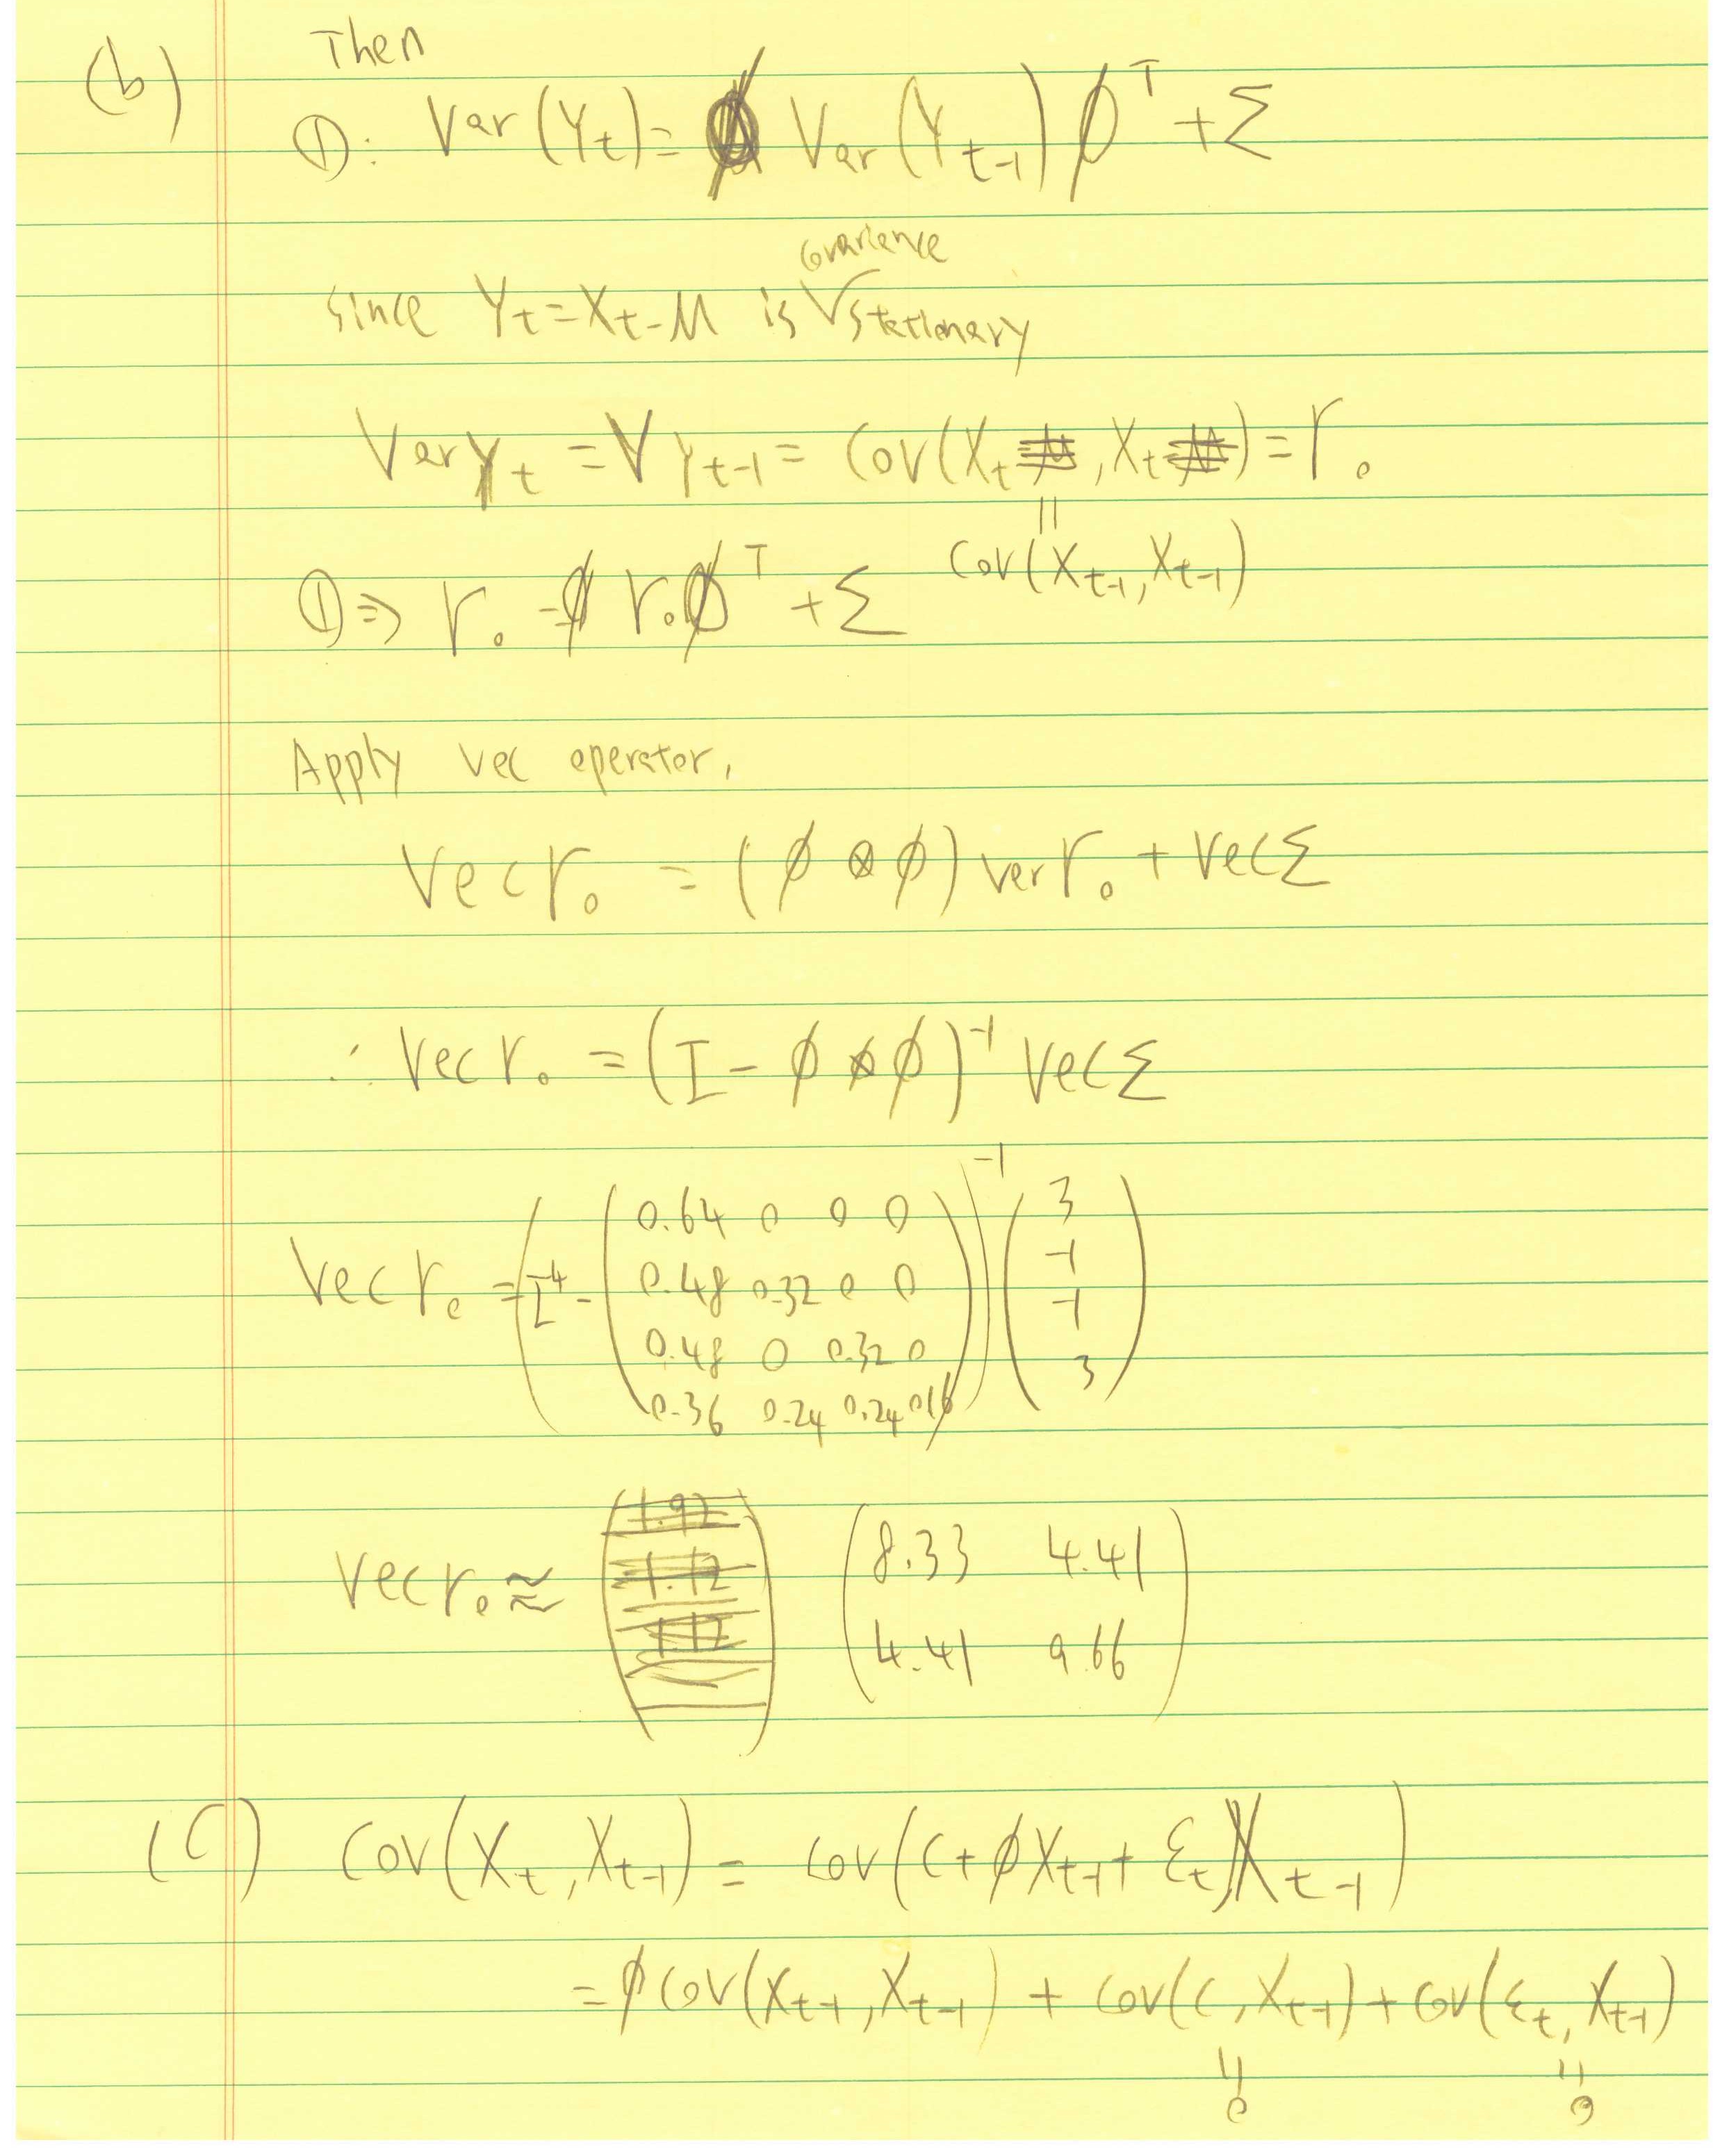 (b) Then
①: Var(Yt) = ϕ Var(Yt-1) ϕ^T + Σ
covariance
since Yt = Xt - M is √stationary
Var Yt = V Yt-1 = Cov(Xt, Xt) = Γ0
||
Cov(Xt-1, Xt-1)
① ⇒ Γ0 = ϕ Γ0 ϕ^T + Σ
Apply vec operator,
Vec Γ0 = (ϕ ⊗ ϕ) ver Γ0 + Vec Σ
∴ Vec Γ0 = (I - ϕ ⊗ ϕ)^-1 Vec Σ
-1
0.64 0 0 0 3
Vec Γ0 = ( I4 - 0.48 0.32 0 0 ) -1
0.48 0 0.32 0 -1
0.36 0.24 0.24 0.16 3
1.92
8.33 4.41
Vec Γ0 ≈ 1.12
1.12
4.41 9.66
(C) Cov(Xt, Xt-1) = Cov(C + ϕXt-1 + εt, Xt-1)
= ϕ Cov(Xt-1, Xt-1) + Cov(C, Xt-1) + Cov(εt, Xt-1)
|| ||
0 0